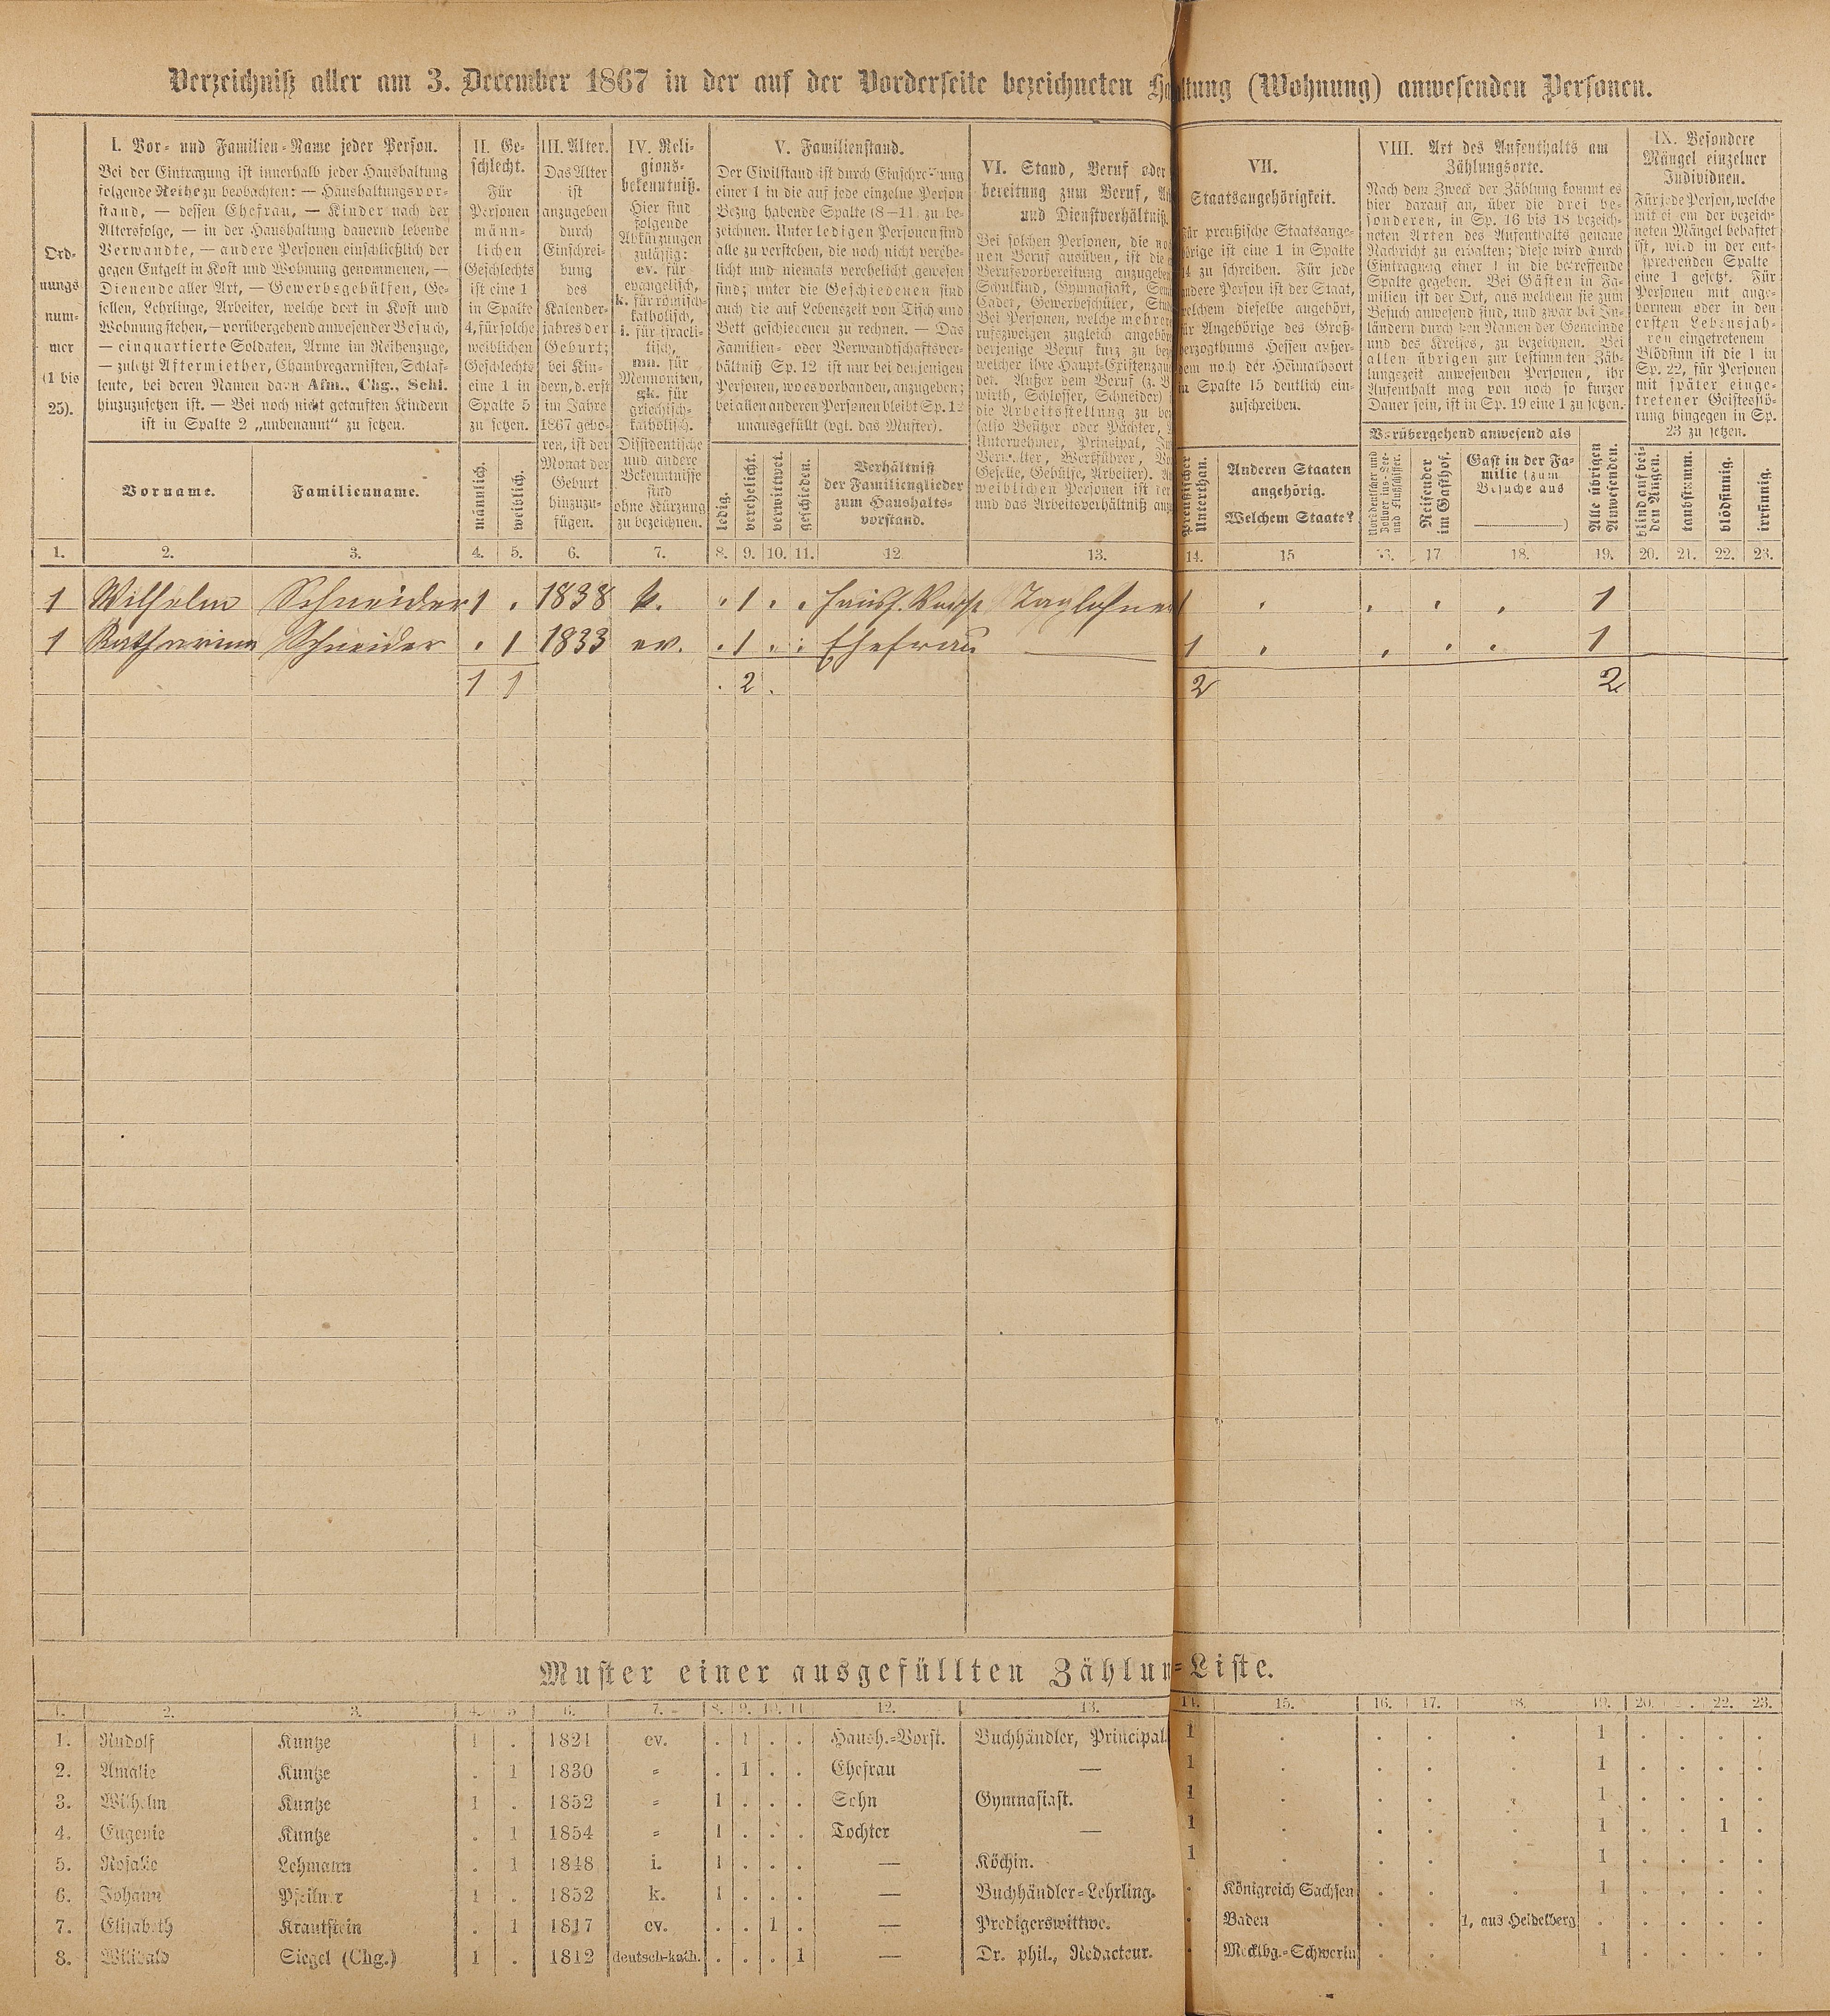 Verzeichniß aller am 3. December 1867 in der auf der Vorderseite bezeichneten Ha ltung (Wohnung) anwesenden Personen.
Ord-
nungs
num-
mer
(1 bis
25).
I. Vor- und Familien-Name jeder Person.
Bei der Eintragung ist innerhalb jeder Haushaltung
folgende Reihe zu beobachten: — Haushaltungsvor-
stand, — dessen Ehefrau, — Kinder nach der
Altersfolge, — in der Haushaltung dauernd lebende
Verwandte, — andere Personen einschließlich der
gegen Entgelt in Kost und Wohnung genommenen, —
Dienende aller Art, — Gewerbsgehülfen, Ge-
sellen, Lehrlinge, Arbeiter, welche dort in Kost und
Wohnung stehen, — vorübergehend anwesender Besuch,
— einquartierte Soldaten, Arme im Reihenzuge,
— zuletzt Aftermiether, Chambregarnisten, Schlaf-
leute, bei deren Namen dann Afm., Chg., Schl.
hinzuzusetzen ist. — Bei noch nicht getauften Kindern
ist in Spalte 2 „unbenannt“ zu setzen.
Vorname.
Familienname.
II. Ge-
schlecht.
Für
Personen
männ-
lichen
Geschlechts
ist eine 1
in Spalte
4, für solche
weiblichen
Geschlechts
eine 1 in
Spalte 5
zu setzen.
männlich.
weiblich.
III. Alter.
Das Alter
ist
anzugeben
durch
Einschrei-
bung
des
Kalender-
jahres der
Geburt;
bei Kin-
dern, d. erst
im Jahre
1867 gebo-
ren, ist der
Monat der
Geburt
hinzuzu-
fügen.
IV. Reli-
gions-
bekenntniß.
Hier sind
folgende
Abkürzungen
zulässig:
ev. für
evangelisch,
k. für römisch-
katholisch,
i. für israeli-
tisch,
mn. für
Mennoniten,
gk. für
griechisch-
katholisch.
Dissidentische
und andere
Bekenntnisse
sind
ohne Kürzung
zu bezeichnen.
V. Familienstand.
Der Civilstand ist durch Einschreibung
einer 1 in die auf jede einzelne Person
Bezug habende Spalte (8—11) zu be-
zeichnen. Unter ledigen Personen sind
alle zu verstehen, die noch nicht verehe-
licht und niemals verehelicht gewesen
sind; unter die Geschiedenen sind
auch die auf Lebenszeit von Tisch und
Bett geschiedenen zu rechnen. — Das
Familien- oder Verwandtschaftsver-
hältniß Sp. 12 ist nur bei denjenigen
Personen, wo es vorhanden, anzugeben;
bei allen anderen Personen bleibt Sp. 12
unausgefüllt (vgl. das Muster).
ledig.
verehelicht.
verwittwet.
geschieden.
Verhältniß
der Familienglieder
zum Haushalts-
vorstand.
VI. Stand, Beruf oder
bereitung zum Beruf,
und Dienstverhältniß.
Bei solchen Personen, die
nen Beruf ausüben, ist die
Berufsvorbereitung anzugeben
Schulkind, Gymnasiast,
Cadet, Gewerbeschüler,
Bei Personen, welche mehren
rufszweigen zugleich angehö
derjenige Beruf kurz zu
welcher ihre Haupt-Existenzqu
det. Außer dem Beruf (z.
wirth, Schlosser, Schneider)
die Arbeitsstellung zu
(also Besitzer oder Pächter,
Unternehmer, Prinzipal,
Verwalter, Werkführer,
Geselle, Gehülfe, Arbeiter).
weiblichen Personen ist
und das Arbeitsverhältniß
VII.
Staatsangehörigkeit.
Für preußische Staatsange-
hörige ist eine 1 in Spalte
14 zu schreiben. Für jede
andere Person ist der Staat,
welchem dieselbe angehört,
für Angehörige des Groß-
herzogthums Hessen außer-
dem noch der Heimathsort
in Spalte 15 deutlich ein-
zuschreiben.
Preußischer
Unterthan.
Anderen Staaten
angehörig.
Welchem Staate?
VIII. Art des Aufenthalts am
Zählungsorte.
Nach dem Zweck der Zählung kommt es
hier darauf an, über die drei be-
sonderen, in Sp. 16 bis 18 bezeich-
neten Arten des Aufenthalts genaue
Nachricht zu erhalten; diese wird durch
Eintragung einer 1 in die betreffende
Spalte gegeben. Bei Gästen in Fa-
milien ist der Ort, aus welchem sie zum
Besuch anwesend sind, und zwar bei In-
ländern durch den Namen der Gemeinde
und des Kreises, zu bezeichnen. Bei
allen übrigen zur bestimmten Zäh-
lungszeit anwesenden Personen, ihr
Aufenthalt mag von noch so kurzer
Dauer sein, ist in Sp. 19 eine 1 zu setzen.
Vorübergehend anwesend als
Norddeutscher und
Zollvereins-See-
und Flußschiffer.
Reisender
im Gasthof.
Gast in der Fa-
milie (zum
Besuche aus
)
Alle übrigen
Anwesenden.
IX. Besondere
Mängel einzelner
Individuen.
Für jede Person, welche
mit einem der bezeich-
neten Mängel behaftet
ist, wird in der ent-
sprechenden Spalte
eine 1 gesetzt. Für
Personen mit ange-
bornem oder in den
ersten Lebensjah-
ren eingetretenem
Blödsinn ist die 1 in
Sp. 22, für Personen
mit später einge-
tretener Geistesstö-
rung hingegen in Sp.
23 zu setzen.
blind auf bei-
den Augen.
taubstumm.
blödsinnig.
irrsinnig.
1. 2. 3. 4. 5. 6. 7. 8. 9. 10. 11. 12 13. 14. 15 16. 17. 18. 19. 20. 21. 22. 23.
1 Wilhelm Schneider 1 . 1838 k. . 1 . . Haush. Vorst Taglöhner 1 . . . . 1
1 Katharina Schneider . 1 1833 ev. . 1 . . Ehefrau — 1 . . . . 1
1 1 . 2 . 2 2
Muster einer ausgefüllten Zählun -Liste.
1. 2. 3. 4. 5. 6. 7. 8. 9. 10. 11. 12. 13. 14. 15. 16. 17. 18. 19. 20. 21. 22. 23.
1. Rudolf Kuntze 1 . 1821 ev. . 1 . . Haush.-Vorst. Buchhändler, Principal. 1 . . . . 1 . . . .
2. Amalie Kuntze . 1 1830 = . 1 . . Ehefrau — 1 . . . . 1 . . . .
3. Wilhelm Kuntze 1 . 1852 = 1 . . . Sohn Gymnasiast. 1 . . . . 1 . . . .
4. Eugenie Kuntze . 1 1854 = 1 . . . Tochter — 1 . . . . 1 . . 1 .
5. Rosalie Lehmann . 1 1848 i. 1 . . . — Köchin. 1 . . . . 1 . . . .
6. Johann Pfeilner 1 . 1852 k. 1 . . . — Buchhändler-Lehrling. . Königreich Sachsen . . . 1 . . . .
7. Elisabeth Krautstein . 1 1817 ev. . . 1 . — Predigerswittwe. . Baden . . 1, aus Heidelberg . . . . .
8. Willibald Siegel (Chg.) 1 . 1812 deutsch-kath. . . . 1 — Dr. phil., Redacteur. . Mecklbg.-Schwerin . . . 1 . . . .